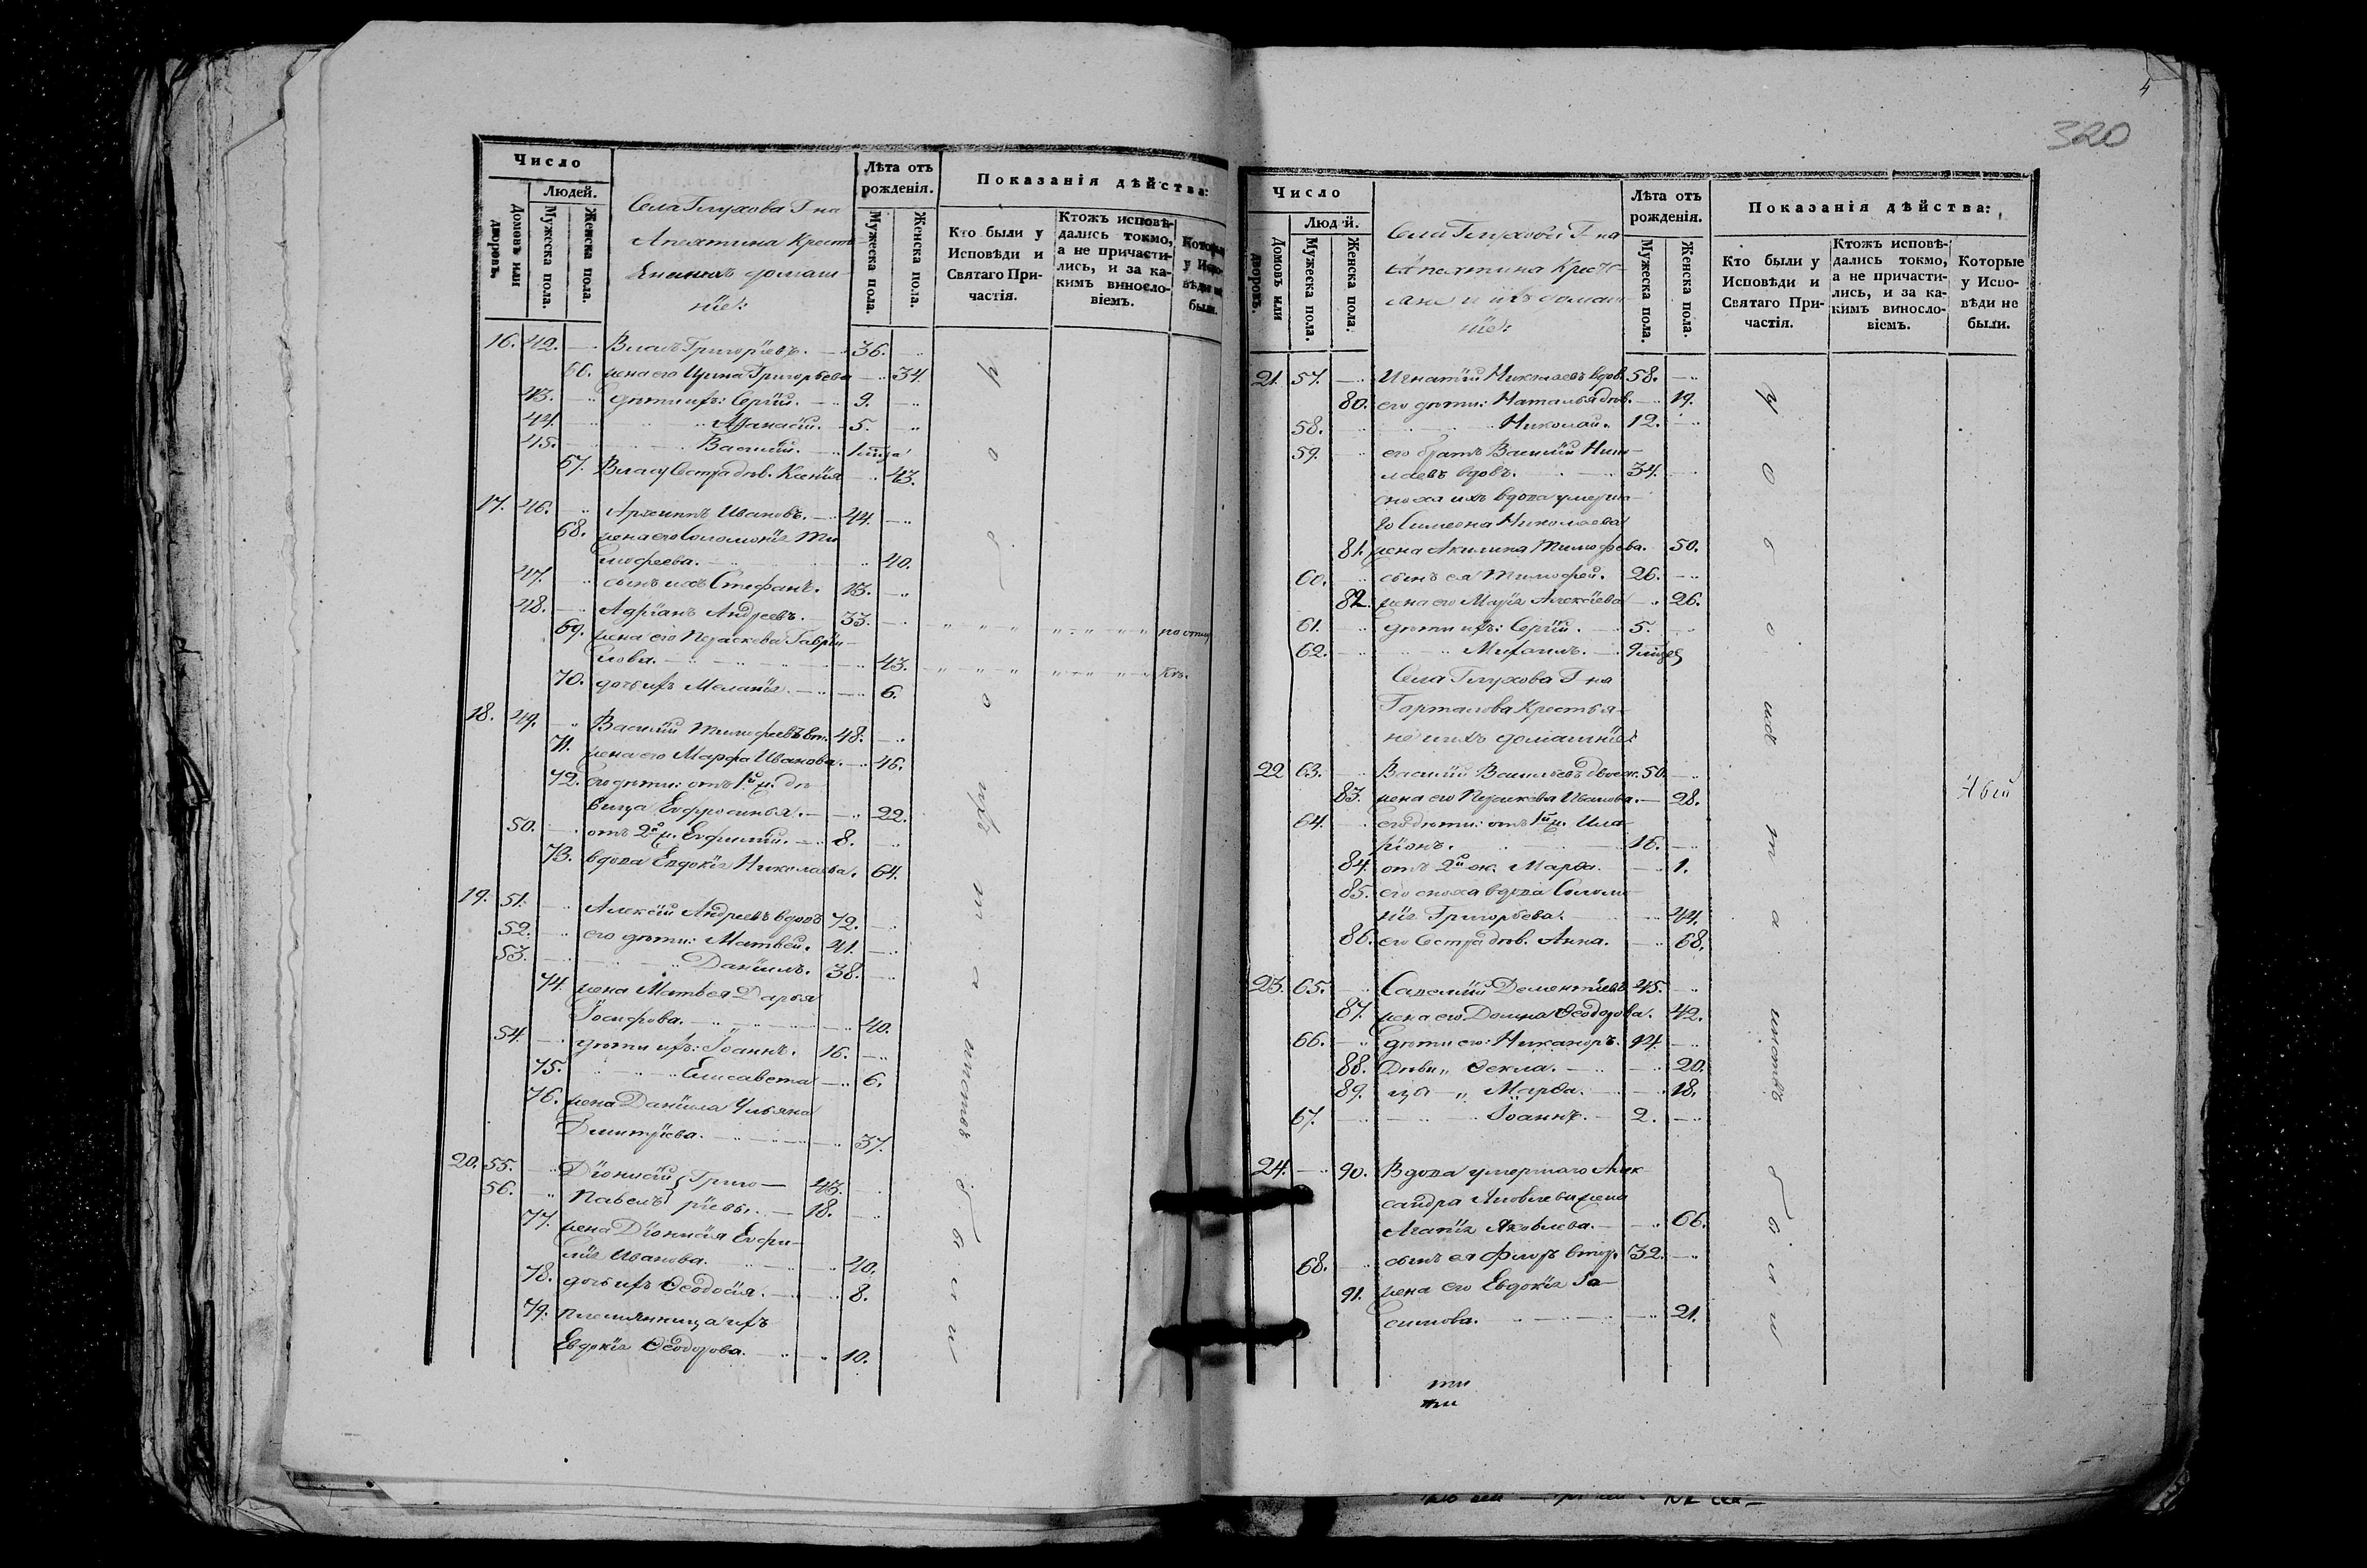 Число
Людей.
Домовъ или дворовъ.
Мужеска пола.
Женска пола.
Села Глухова Г-на
Апехтина Кресть-
яне и ихъ домаш-
ніе:
Лѣта отъ рожденія.
Мужеска пола.
Женска пола.
Показанія дѣйства:
Кто были у Исповѣди и Святаго Причастія.
Ктожъ исповѣдались токмо, а не причастились, и за какимъ винословіемъ.
Которые у Исповѣди не были.
16. 42. Власъ Григоріевъ. 36.
66. жена его Ирина Григорьева 34.
43. дѣти ихъ: Сергій. 9.
44. Афанасій. 5.
45. Василій. 1
67. Власу сестра дѣв. Ксенія 43.
17. 46. Архиппъ Ивановъ. 44.
68. жена его Соломонія Ти
мофеева. 40.
47. сынъ ихъ Стефанъ. 13.
48. Адріанъ Андреевъ. 33.
69. жена его Параскева Гаврі-
лова. 43.
70. дочь ихъ Меланія. 6.
по отлу
18. 49. Василій Тимофеевъ вт. 48.
71. жена его Марфа Иванова. 46.
72. его дѣти: отъ 1й ж. дѣ
вица Евфросинья. 22.
50. отъ 2й ж. Евфимій. 8.
73. вдова Евдокія Николаева. 64.
19. 51. Алексій Андреевъ вдовъ 72.
52. его дѣти: Матвей. 41.
53. Даніилъ. 38.
74. жена Матвея Дарья
Іосифова. 40.
54. дѣти ихъ: Іоаннъ. 16.
75. Елисавета 6.
76. жена Даніила Ульяна
Дмитріева. 37.
20. 55. Діонисій Григо- 43.
56. Павелъ ріевы. 18.
77. жена Діонисія Евфи-
мія Иванова. 40.
78. дочь ихъ Ѳеодосія. 8.
79. племянница ихъ
Евдокія Ѳеодорова. 10.
у о б о ихъ т а инствъ б ы л и
4
320
Число
Людей.
Домовъ или дворовъ.
Мужеска пола.
Женска пола.
Села Глухова Г-на
Апехтина Кресть-
яне и ихъ домаш-
ніе:
Лѣта отъ рожденія.
Мужеска пола.
Женска пола.
Показанія дѣйства:
Кто были у Исповѣди и Святаго Причастія.
Ктожъ исповѣдались токмо, а не причастились, и за какимъ винословіемъ.
Которые у Исповѣди не были.
21. 57. Игнатій Николаевъ вдов. 58.
80. его дѣти: Наталья дѣв. 19.
58. Николай. 12.
59. его братъ Василій Нико-
лаевъ вдовъ. 34.
сноха ихъ вдова умерша-
го Симеона Николаева
81. жена Акилина Тимофева. 50.
60. сынъ ея Тимофей. 26.
82. жена его Марія Алексіева 26.
61. дѣти ихъ: Сергій. 5.
62. Михаилъ. 9
Села Глухова Г-на
Горталова Крестья-
не и ихъ домашніе:
22 63. Василій Васильевъ двоеж. 50.
83. жена его Параскева Иванова. 28.
64. его дѣти: отъ 1й ж. Ила
ріонъ. 16.
84. отъ 2й ж. Марѳа. 1.
85. его сноха вдова Соломо
нія Григорьева. 44.
86. его сестра дѣв. Анна. 68.
23. 65. Савелій Дементіевъ 45.
87. жена его Домна Ѳеодорова. 42.
66. дѣти его: Никаноръ. 14.
88. Дѣви „ Ѳекла. 20.
89. цы „ Марѳа. 18.
67. Іоаннъ. 2.
24. 90. Вдова умершаго Алек
сандра Яковлева жена
Агапія Яковлева. 66.
68. сынъ ея Флоръ втор. 32.
91. жена его Евдокія Га-
симова. 21.
у о б о ихъ т а инствъ б ы л и